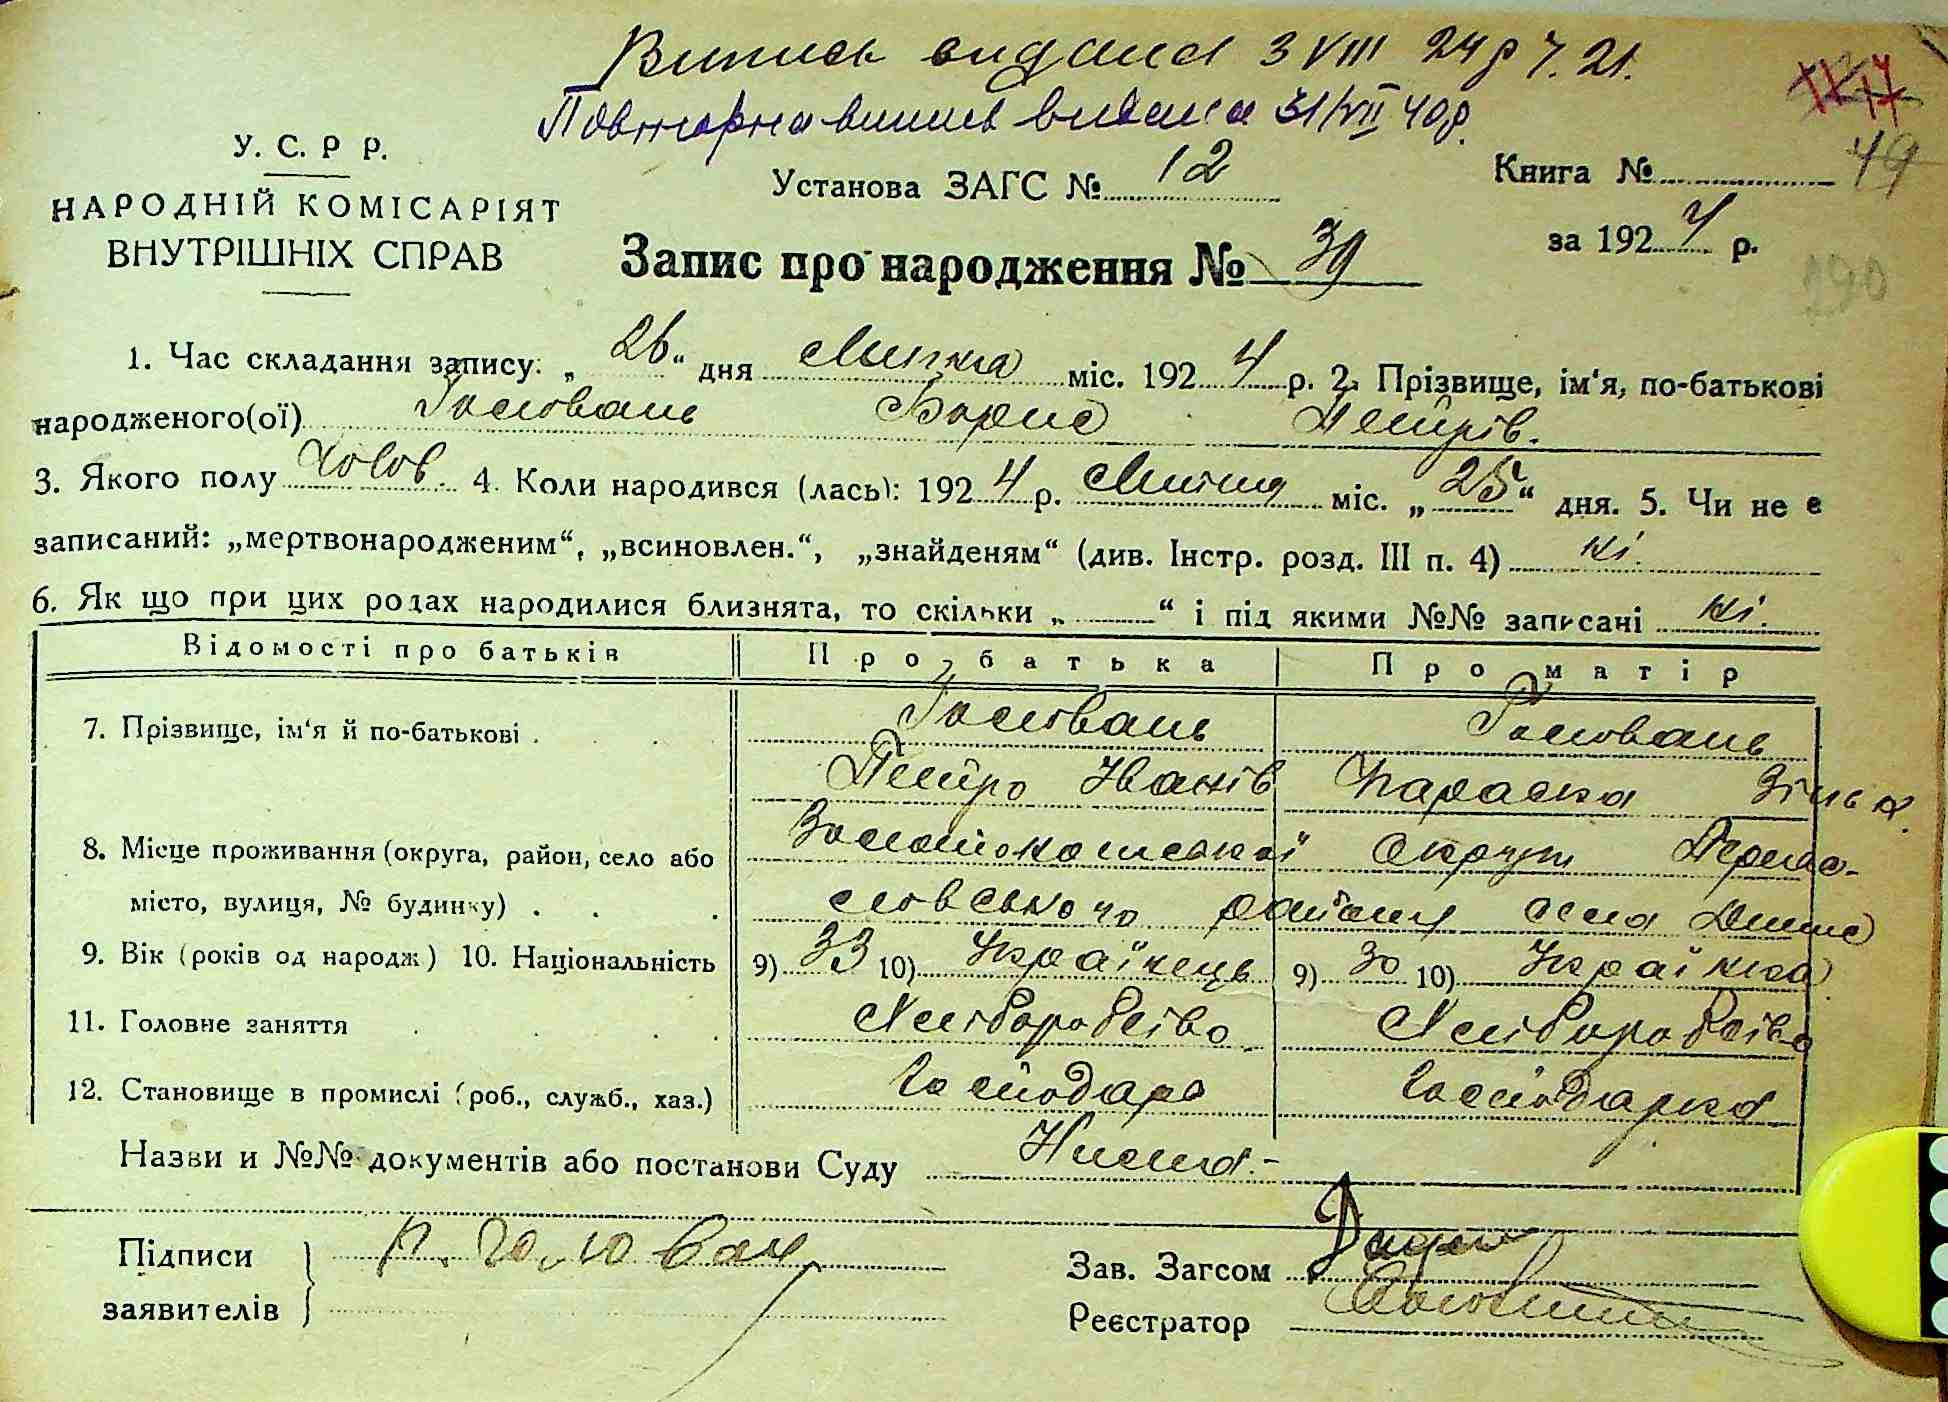 Випись видана 3 VIII 24 р Ч. 21.
Повторна випись видана 31/VII 40 р.
У. С. Р Р.
НАРОДНІЙ КОМІСАРІЯТ
ВНУТРІШНІХ СПРАВ
Установа ЗАГС № 12
Книга № 49
за 1924 р.
Запис про народження № 39
190
1. Час складання запису: „26“ дня Липня міс. 1924 р. 2. Прізвище, ім‘я, по-батькові
народженого(ої) Головань Борис Петрів.
3. Якого полу чолов. 4. Коли народився (лась): 1924 р. Липня міс. „25“ дня. 5. Чи не є
записаний: „мертвонародженим“, „всиновлен.“, „знайденям“ (див. Інстр. розд. III п. 4) ні.
6. Як що при цих родах народилися близнята, то скільки „ “ і під якими №№ записані ні.
Відомості про батьків Про батька Про матір
7. Прізвище, ім‘я й по-батькові . Головань Головань
Петро Іванів Параска
8. Місце проживання (округа, район, село або Золотоноської округи
місто, вулиця, № будинку) . району села
9. Вік (років од народж) 10. Національність 9) 33 10) Українець 9) 30 10) Українка
11. Головне заняття Хліборобство Хліборобство
12. Становище в промислі (роб., служб., хаз.) Господарь Господарка
Назви и №№ документів або постанови Суду Нема.-
Підписи П. Головань
заявителів
Зав. Загсом
Реєстратор